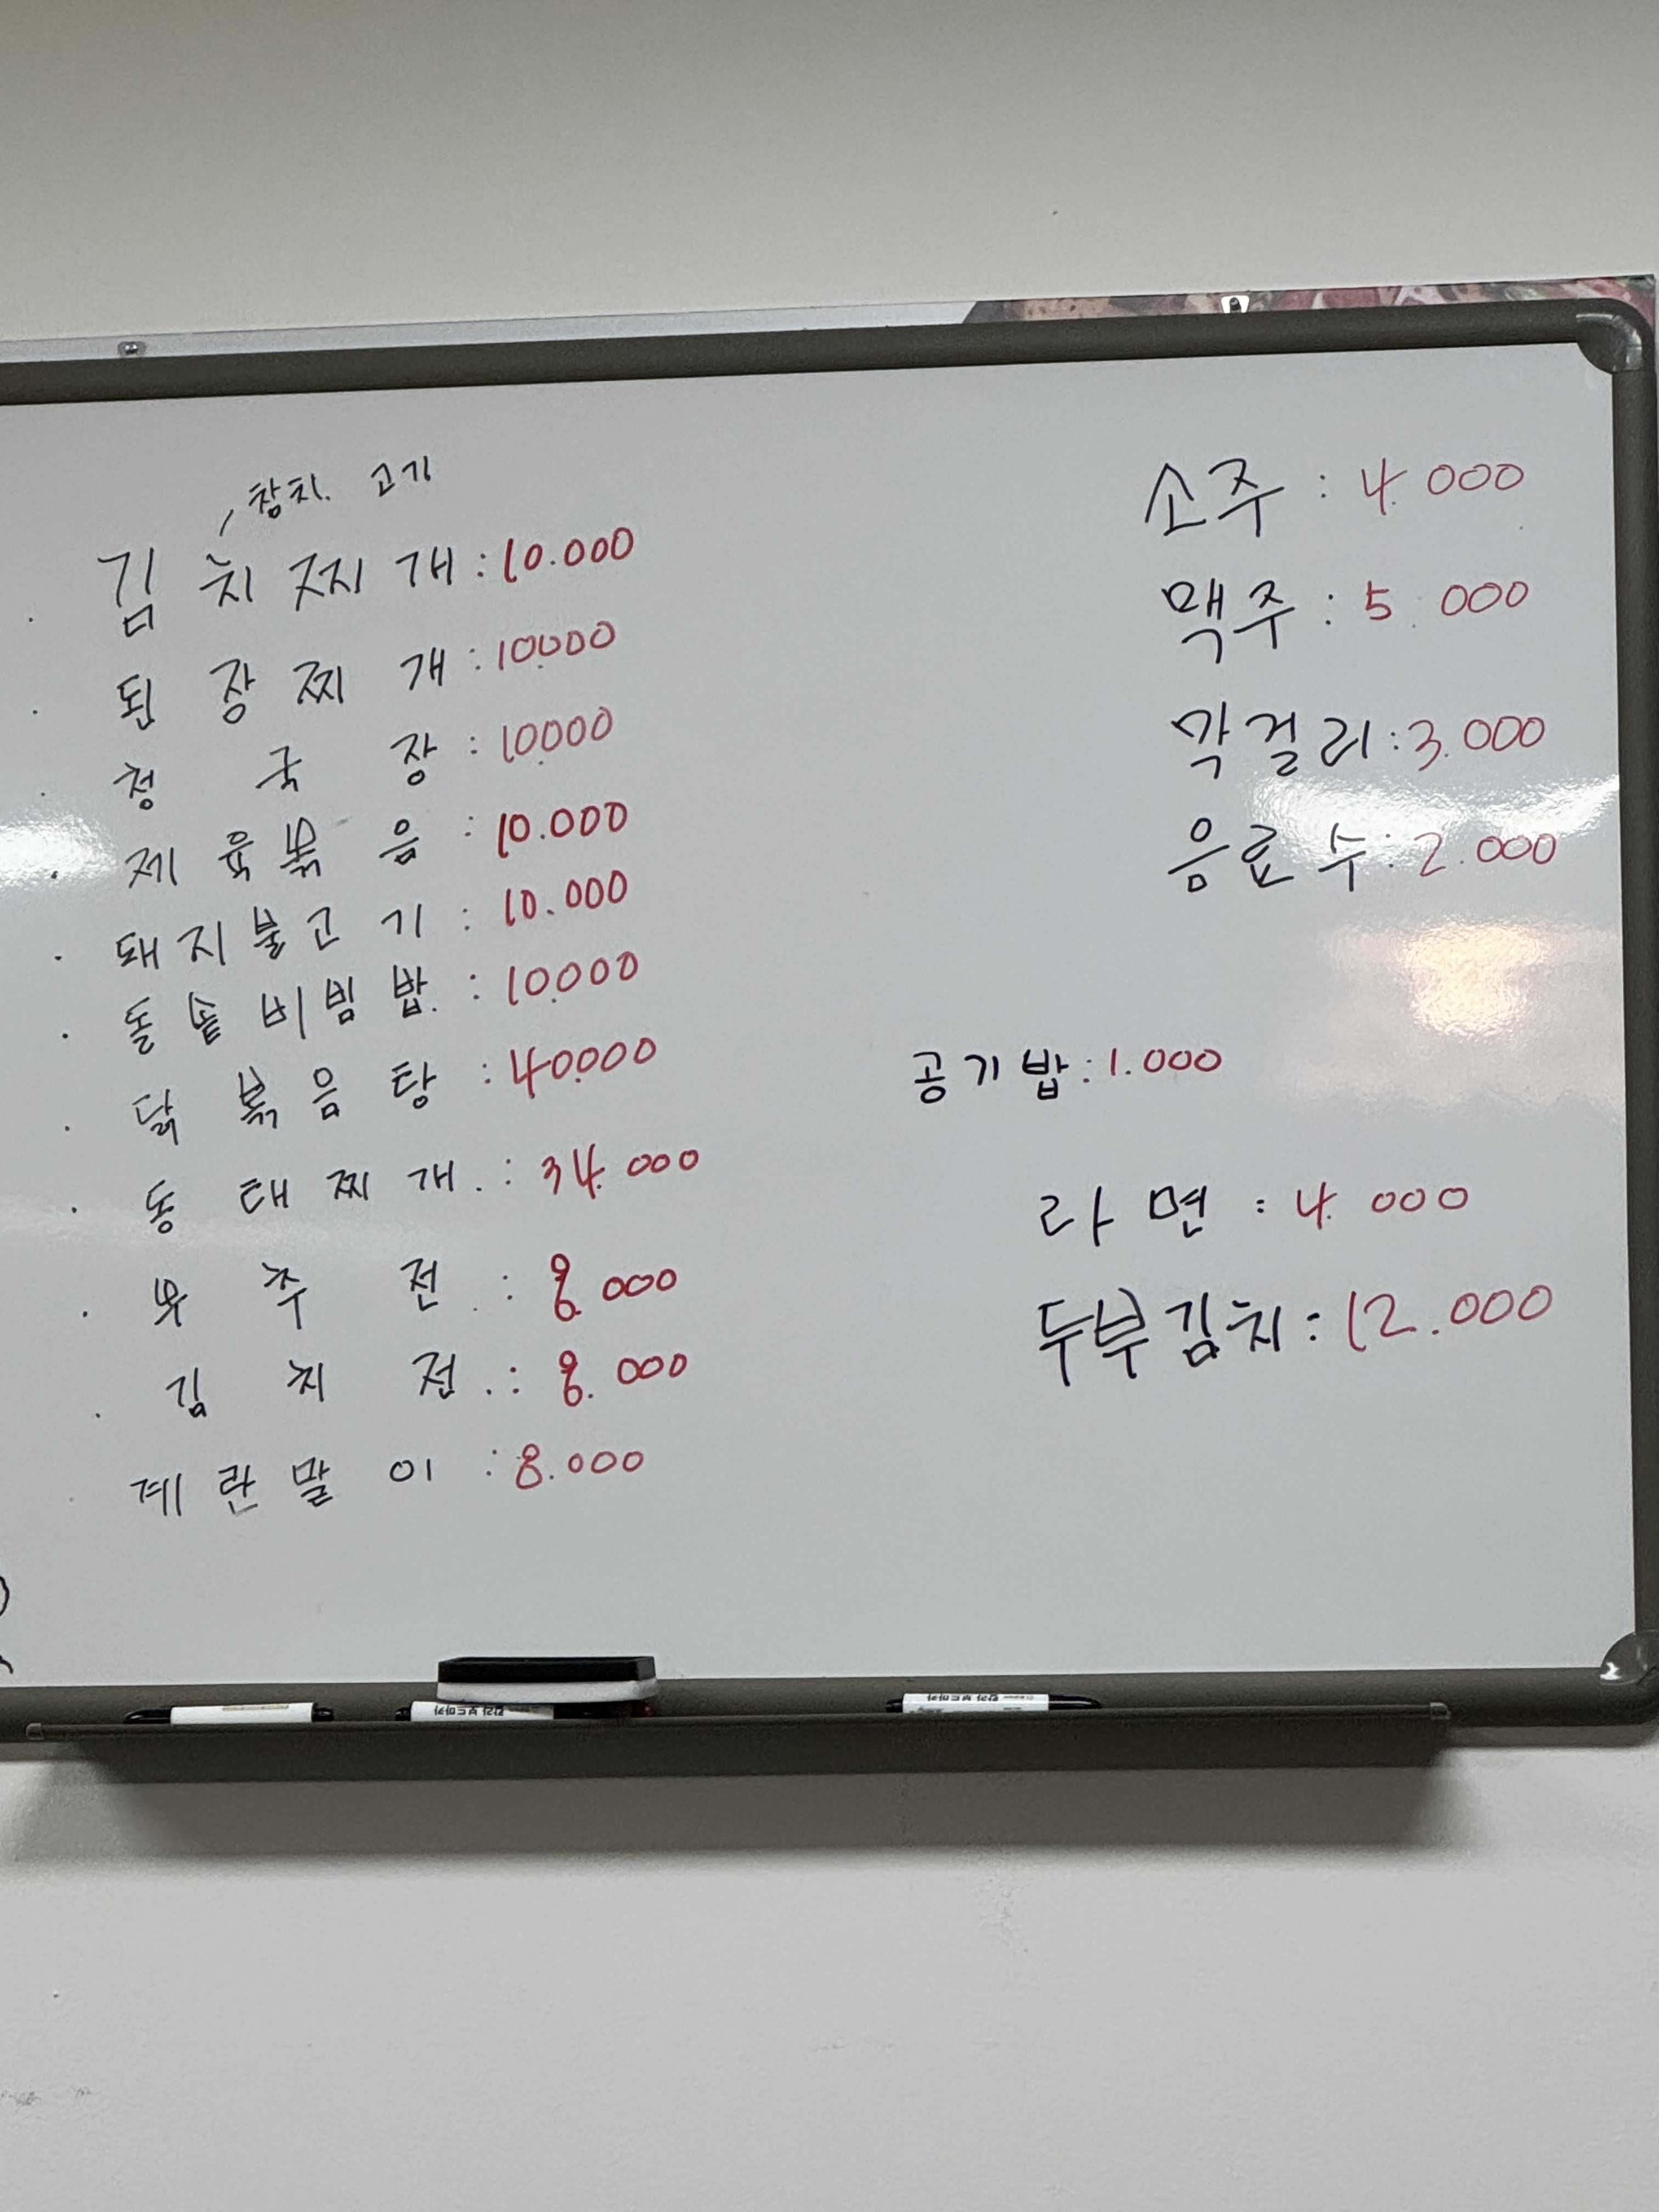 참치. 고기
김치찌개 : 10.000
된장찌개 : 10.000
청국장 : 10.000
제육볶음 : 10.000
돼지불고기 : 10.000
돌솥비빔밥 : 10.000
닭볶음탕 : 40.000
동태찌개 : 34.000
부추전 : 8.000
김치전 : 8.000
계란말이 : 8.000
소주 : 4.000
맥주 : 5.000
막걸리 : 3.000
음료수 : 2.000
공기밥 : 1.000
라면 : 4.000
두부김치 : 12.000